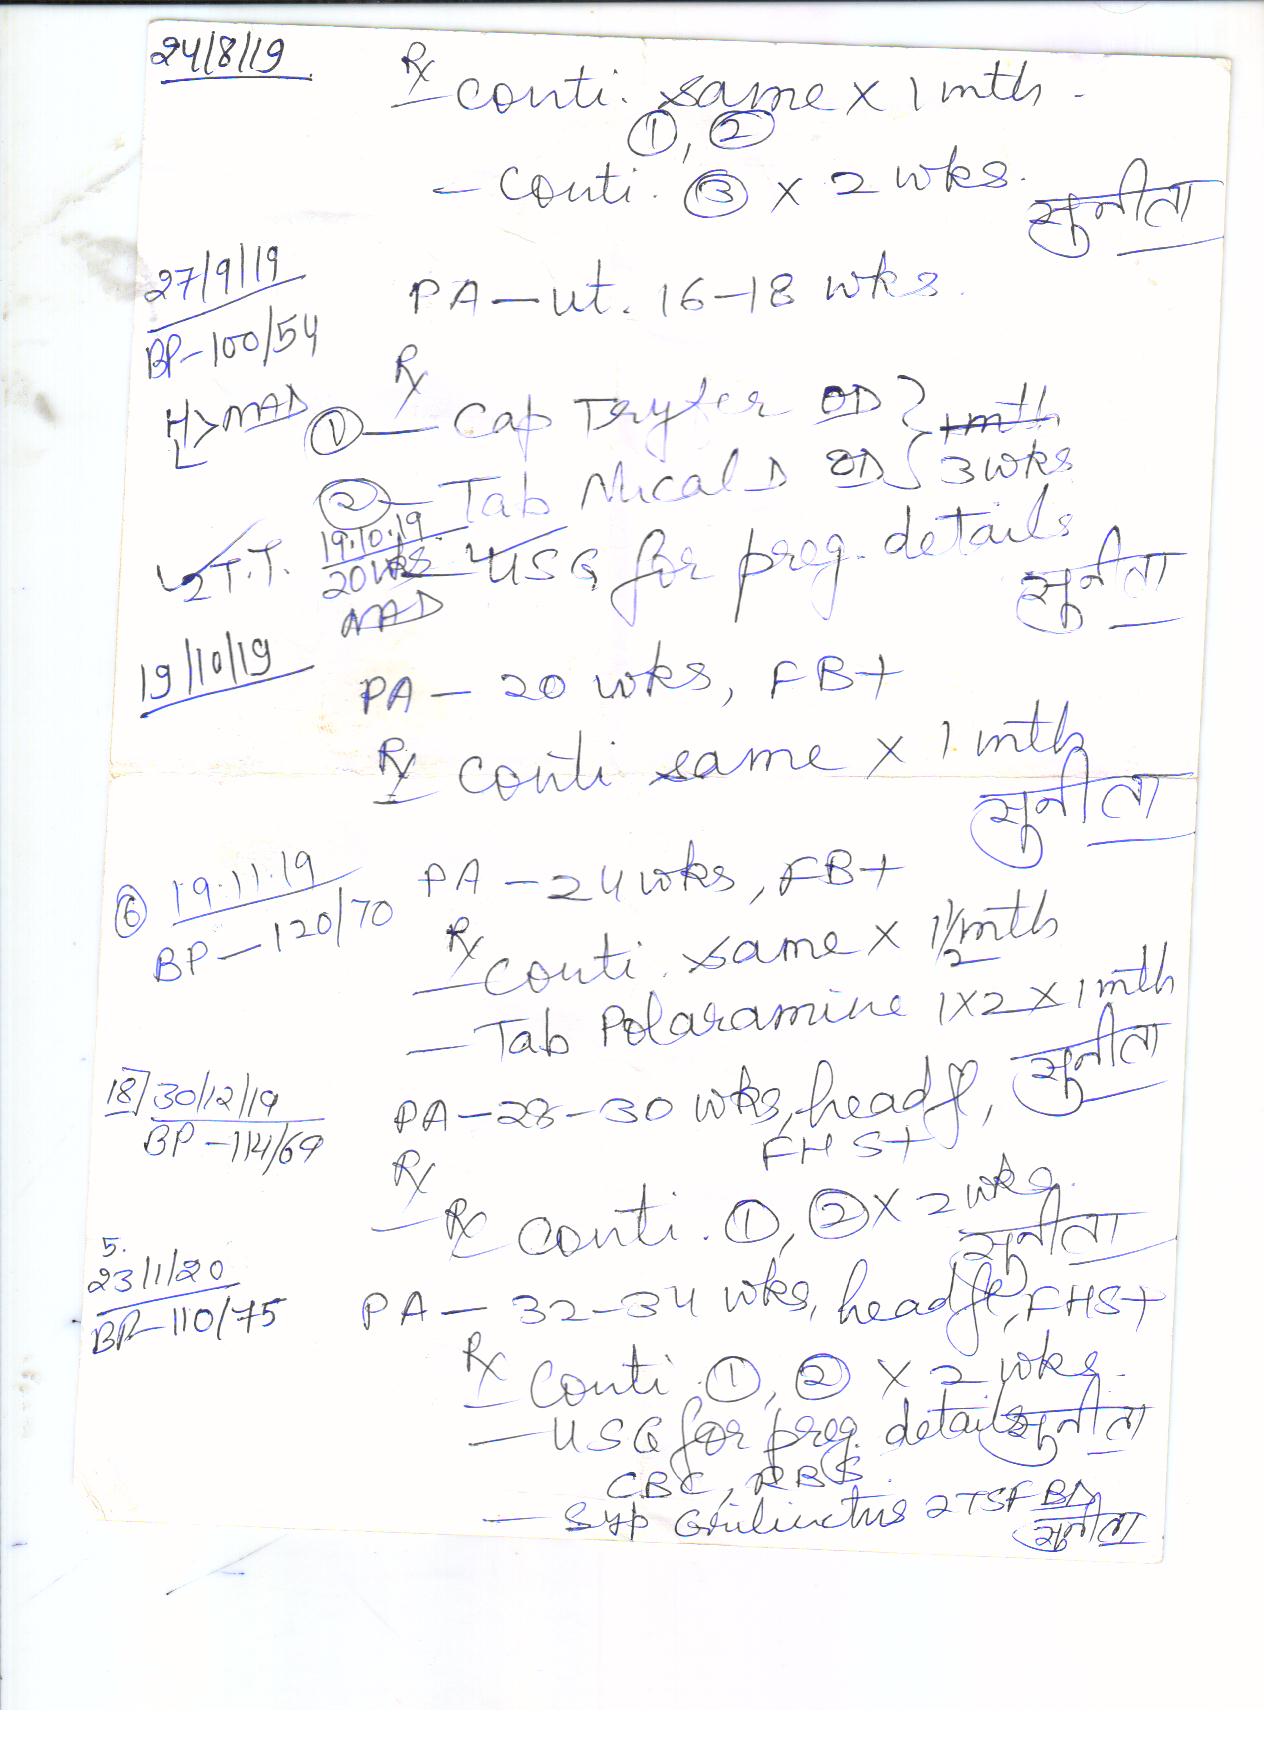 24/8/19
Rx
- conti. same x 1 mth -
①, ②
- conti. ③ x 2 wks.
सुनीता
27/9/19
PA - ut. 16-18 wks.
BP - 100/54
Rx
H > NAD
L
① - Cap Tryfer OD } 1 mth
3 wks
② - Tab Nical D OD
2 T.T.
19.10.19
20 wks
NAD
- USG for preg. details
सुनीता
19/10/19
PA - 20 wks, FB+
Rx
- conti same x 1 mth
सुनीता
⑥ 19.11.19
PA - 24 wks, FB+
BP - 120/70
Rx
- conti. same x 1 1/2 mth
- Tab Polaramine 1x2 x 1 mth
सुनीता
18] 30/12/19
PA - 28-30 wks, head,
FHS+
BP - 114/69
Rx
- Rx conti. ①, ② x 2 wks.
सुनीता
5.
23/1/20
BP - 110/75
PA - 32-34 wks, head, FHS+
Rx
- conti ①, ② x 2 wks.
- USG for preg. details
सुनीता
CBC, RBS.
- Syp Grilinctus 2 TSF BD
सुनीता